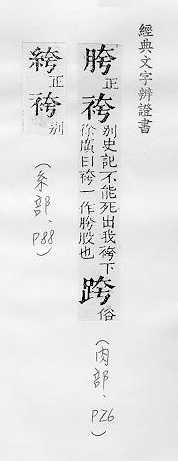 經典文字辨證書
胯正
袴别史記不能死出我袴下
徐廣曰袴一作胯股也
跨俗
(肉部、P26)
絝正
袴别
(糸部、P88)